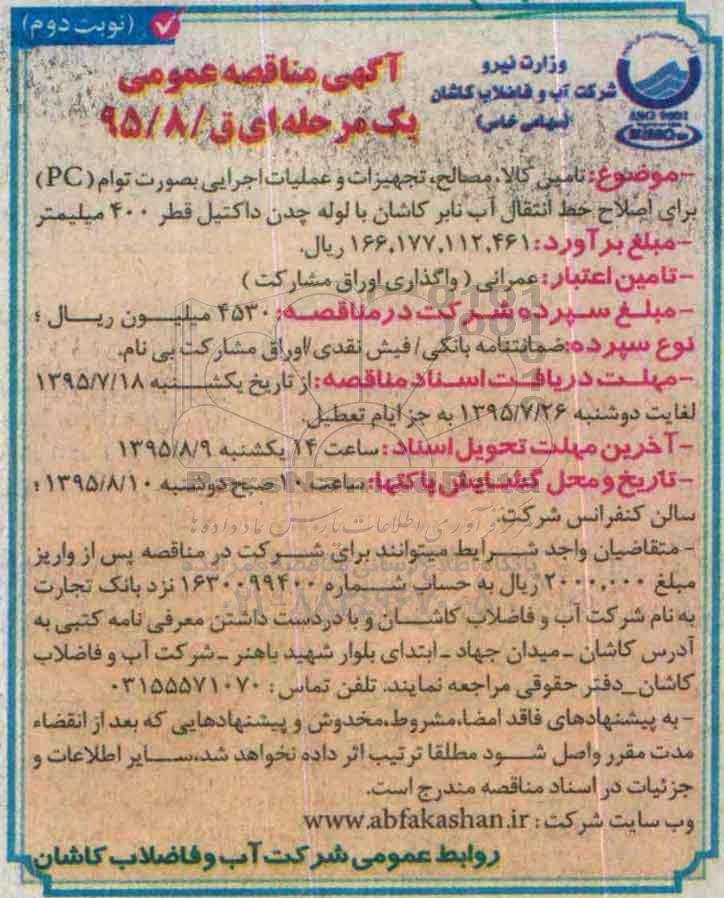 (نوبت دوم)
وزارت نیرو
شرکت آب و فاضلاب کاشان
(سهامی خاص)
آگهی مناقصه عمومی
یک مرحله ای ق/۹۵/۸
ISO 9001
-موضوع: تامین کالا، مصالح، تجهیزات و عملیات اجرایی بصورت توام (PC)
برای اصلاح خط انتقال آب نابر کاشان با لوله چدن داکتیل قطر ۴۰۰ میلیمتر
-مبلغ برآورد: ۱۶۶,۱۷۷,۱۱۲,۴۶۱ ریال.
-تامین اعتبار: عمرانی ( واگذاری اوراق مشارکت )
-مبلغ سپرده شرکت در مناقصه: ۴۵۳۰ میلیون ریال ؛
نوع سپرده: ضمانتنامه بانکی/ فیش نقدی/اوراق مشارکت بی نام.
-مهلت دریافت اسناد مناقصه: از تاریخ یکشنبه ۱۳۹۵/۷/۱۸
لغایت دوشنبه ۱۳۹۵/۷/۲۶ به جز ایام تعطیل.
-آخرین مهلت تحویل اسناد: ساعت ۱۴ یکشنبه ۱۳۹۵/۸/۹
-تاریخ و محل گشایش پاکتها: ساعت ۱۰ صبح دوشنبه ۱۳۹۵/۸/۱۰ ؛
سالن کنفرانس شرکت.
- متقاضیان واجد شرایط میتوانند برای شرکت در مناقصه پس از واریز
مبلغ ۲۰۰۰,۰۰۰ ریال به حساب شماره ۱۶۳۰۰۹۹۴۰۰ نزد بانک تجارت
به نام شرکت آب و فاضلاب کاشان و با دردست داشتن معرفی نامه کتبی به
آدرس کاشان - میدان جهاد - ابتدای بلوار شهید باهنر - شرکت آب و فاضلاب
کاشان_دفتر حقوقی مراجعه نمایند. تلفن تماس : ۰۳۱۵۵۵۷۱۰۷۰
- به پیشنهادهای فاقد امضا،مشروط،مخدوش و پیشنهادهایی که بعد از انقضاء
مدت مقرر واصل شود مطلقا ترتیب اثر داده نخواهد شد،سایر اطلاعات و
جزئیات در اسناد مناقصه مندرج است.
وب سایت شرکت : www.abfakashan.ir
روابط عمومی شرکت آب و فاضلاب کاشان